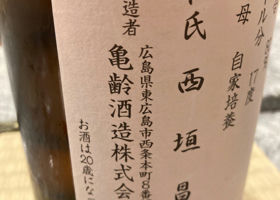 ル分 17度
母 自家培養
氏 西垣昌
造者
広島県東広島市西条本町8番
亀齢酒造株式会
お酒は20歳にな